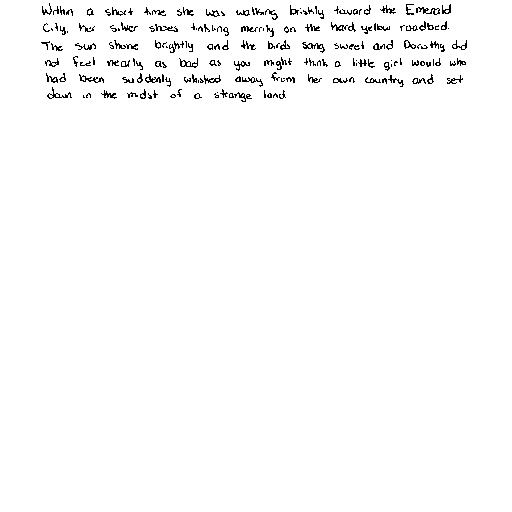 Within a short time she was walking briskly toward the Emerald
City, her silver shoes tinkling merrily on the hard, yellow roadbed.
The sun shone brightly and the birds sang sweet and Dorothy did
not feel nearly as bad as you might think a little girl would who
had been suddenly whisked away from her own country and set
down in the midst of a strange land